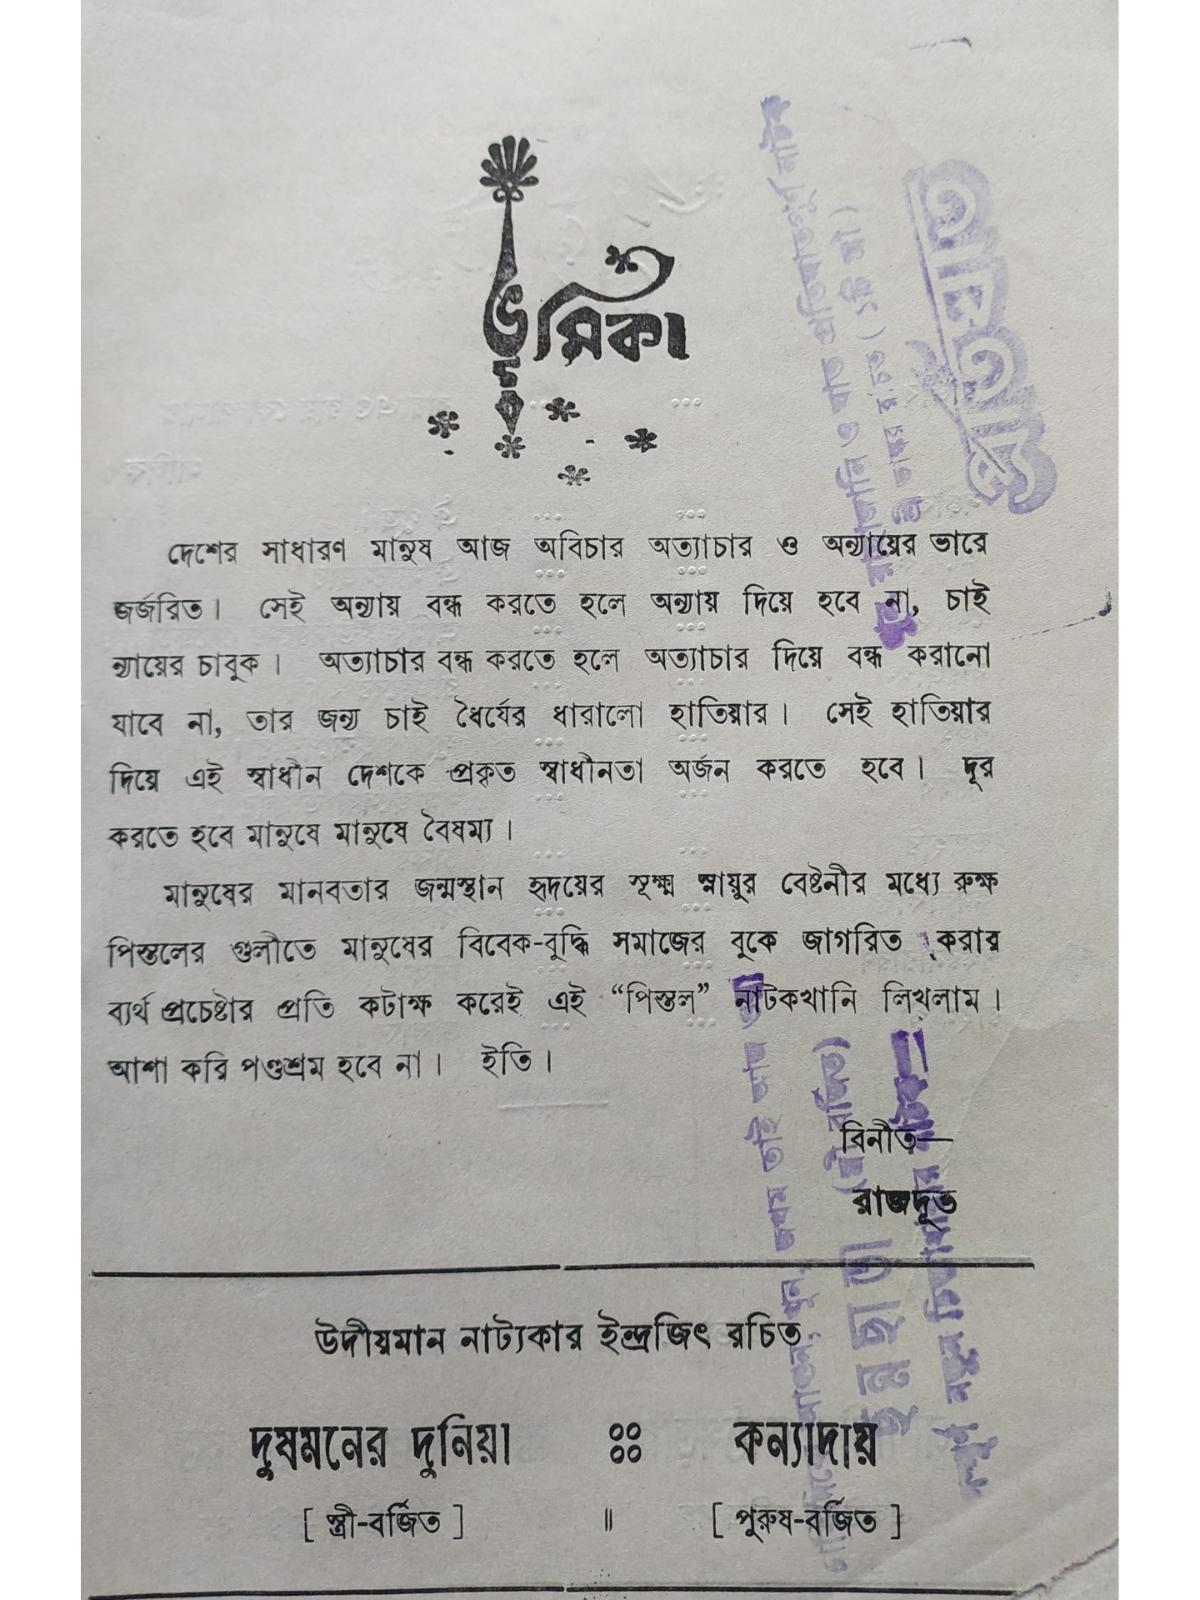 ভূমিকা
দেশের সাধারণ মানুষ আজ অবিচার অত্যাচার ও অন্যায়ের ভারে
জর্জরিত। সেই অন্যায় বন্ধ করতে হলে অন্যায় দিয়ে হবে না, চাই
ন্যায়ের চাবুক। অত্যাচার বন্ধ করতে হলে অত্যাচার দিয়ে বন্ধ করানো
যাবে না, তার জন্য চাই ধৈর্যের ধারালো হাতিয়ার। সেই হাতিয়ার
দিয়ে এই স্বাধীন দেশকে প্রকৃত স্বাধীনতা অর্জন করতে হবে। দূর
করতে হবে মানুষে মানুষে বৈষম্য।
মানুষের মানবতার জন্মস্থান হৃদয়ের সূক্ষ্ম স্নায়ুর বেষ্টনীর মধ্যে রুক্ষ
পিস্তলের গুলীতে মানুষের বিবেক-বুদ্ধি সমাজের বুকে জাগরিত করার
ব্যর্থ প্রচেষ্টার প্রতি কটাক্ষ করেই এই “পিস্তল” নাটকখানি লিখলাম।
আশা করি পণ্ডশ্রম হবে না। ইতি।
বিনীত—
রাজদূত
উদীয়মান নাট্যকার ইন্দ্রজিৎ রচিত
দুষমনের দুনিয়া কন্যাদায়
[ স্ত্রী-বর্জিত ] ॥ [ পুরুষ-বর্জিত ]